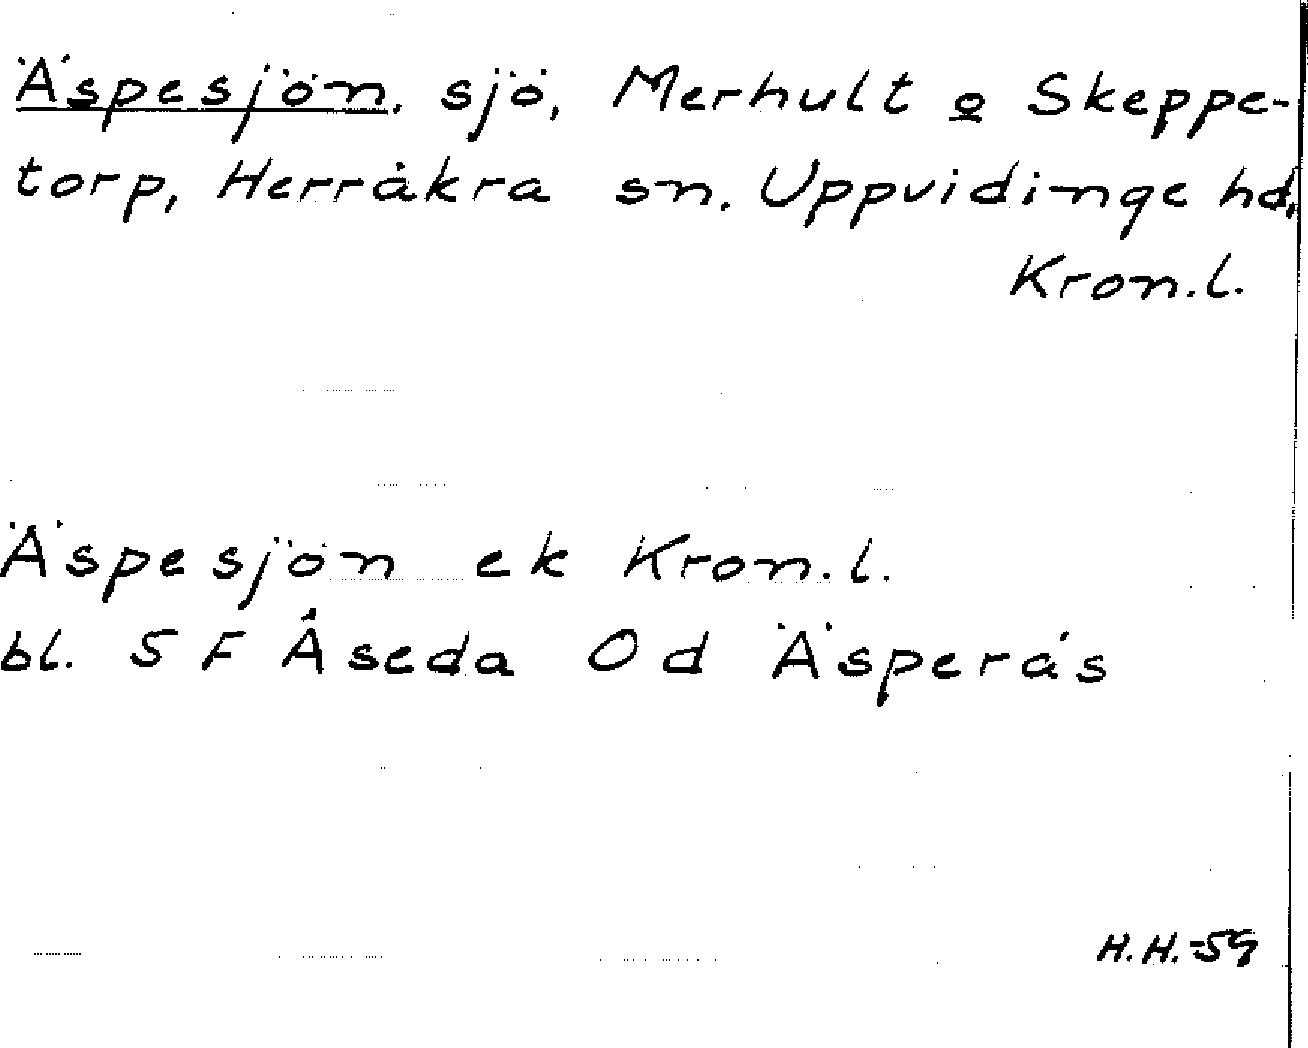 Äspesjön. sjö, Merhult o Skeppe-
torp, Herråkra sn. Uppvidinge hd,
Kron.l.
Äspesjön ek Kron.l.
bl. 5 F Åseda 0 d Äsperås
H.H.-59